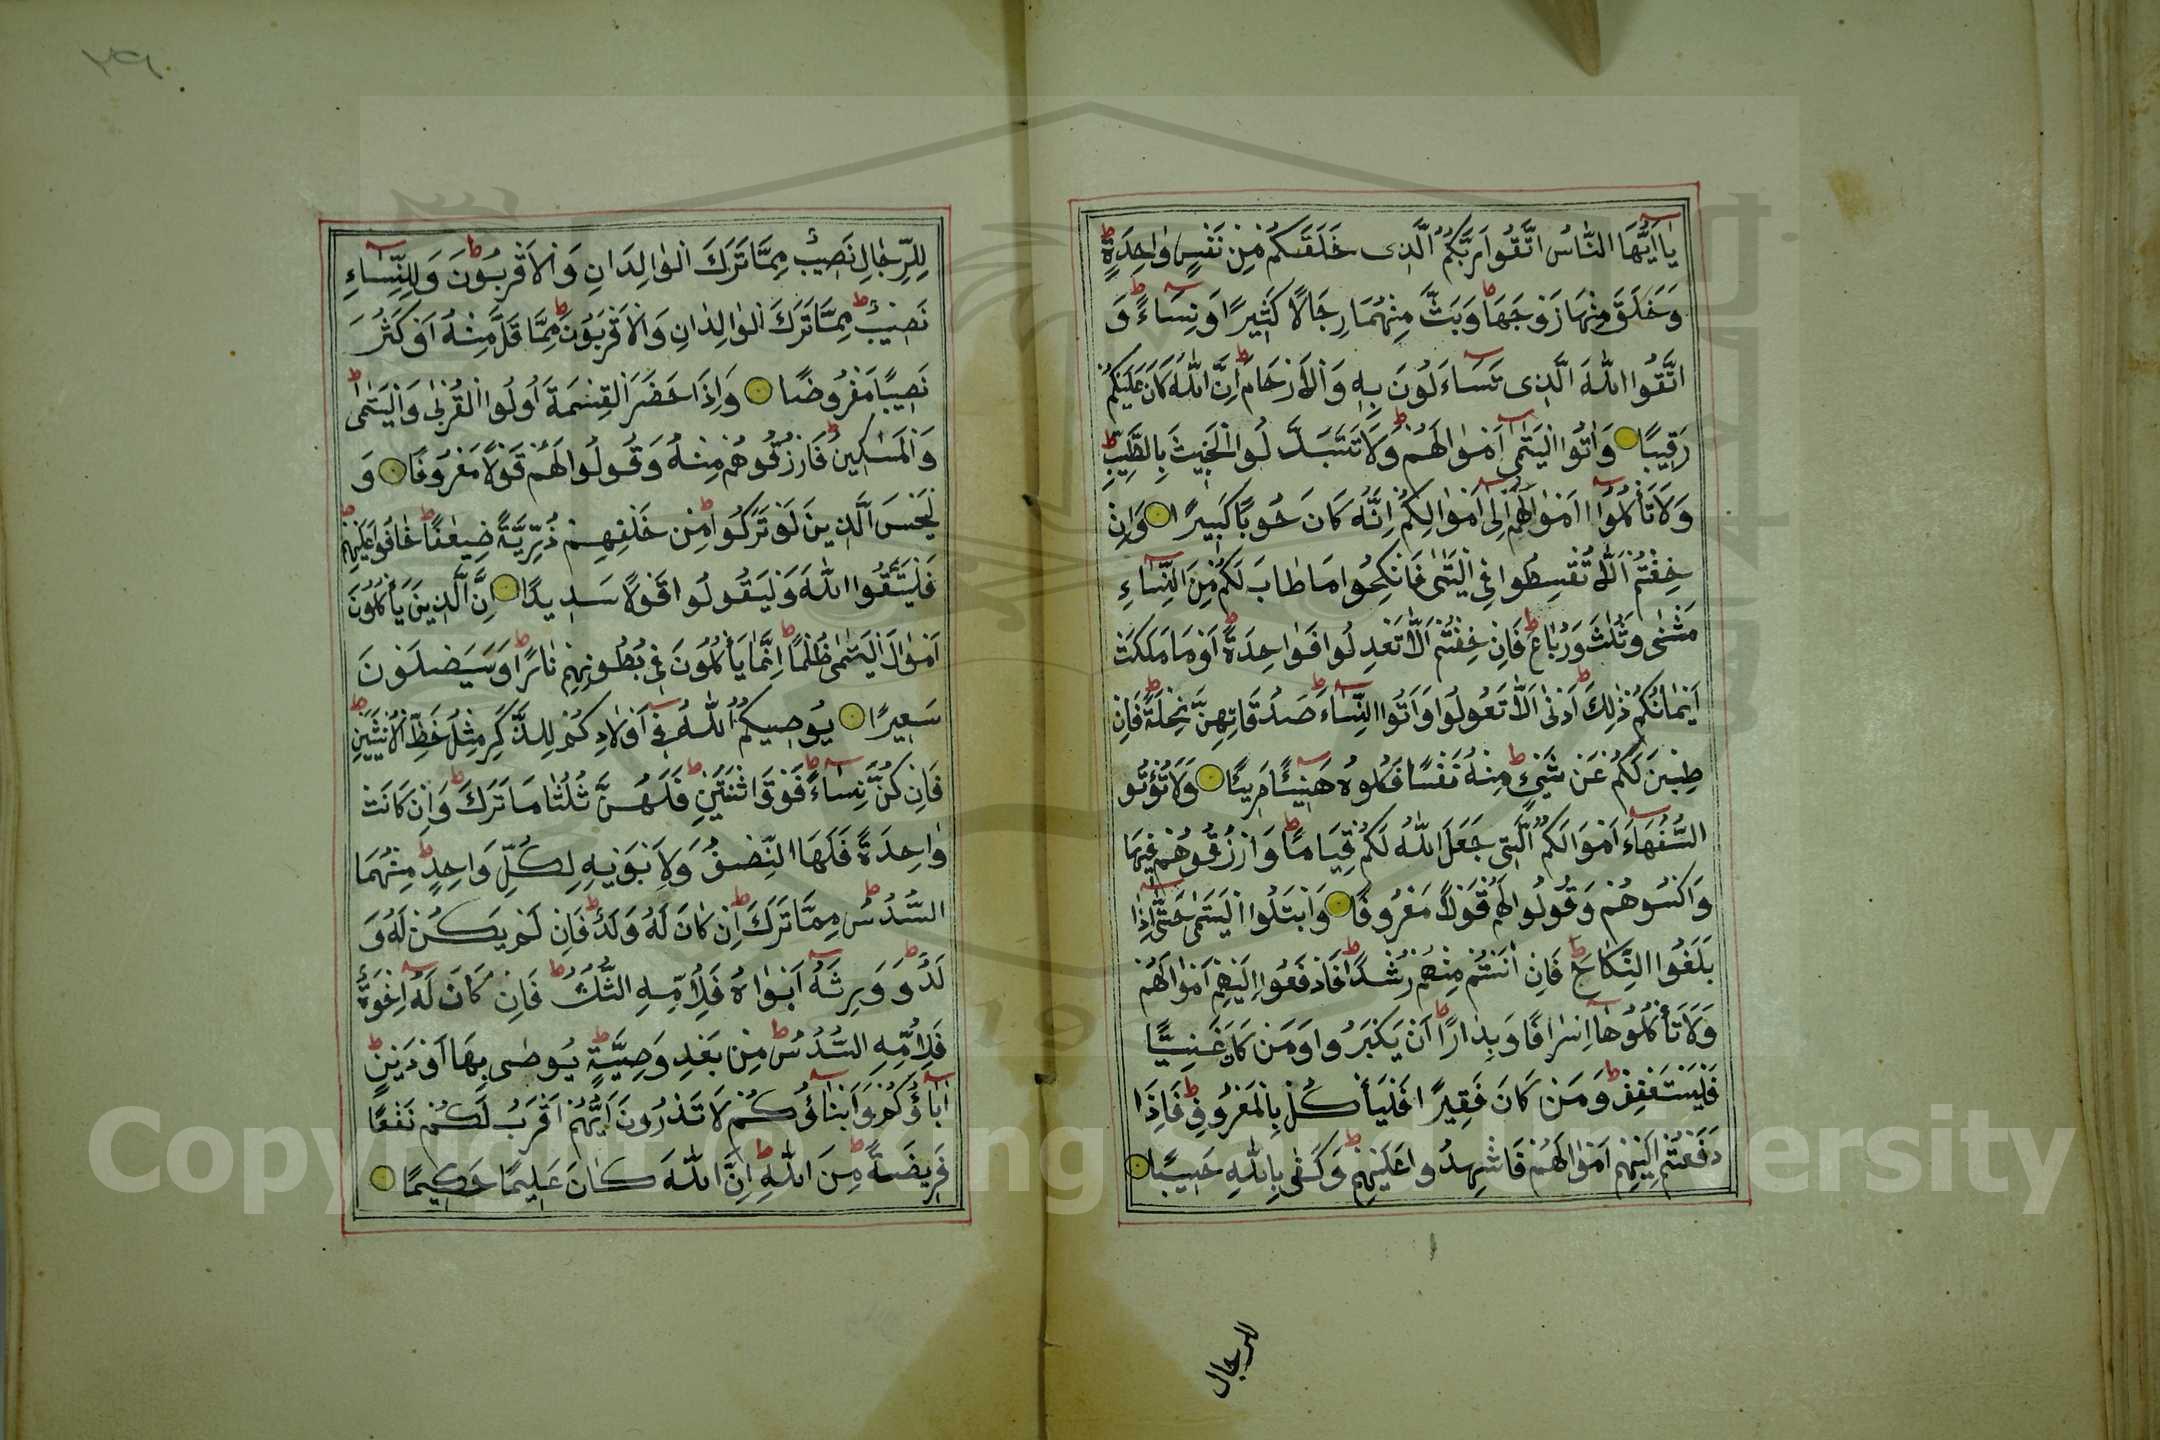 يَا اَيُّهَا النَّاسُ اتَّقُوا رَبَّكُمُ الَّذِى خَلَقَكُمْ مِنْ نَفْسٍ وٰاحِدَةٍ
وَخَلَقَ مِنْهَا زَوْجَهَا وَبَثَّ مِنْهُمَا رِجَالًا كَثِيرًا وَنِسَاءً وَ
اتَّقُوا اللّٰهَ الَّذِى تَسَاءَلُونَ بِهِ وَالْاَرْحَامَ اِنَّ اللّٰهَ كَانَ عَلَيْكُمْ
رَقِيبًا وَاٰتُوا الْيَتٰمٰى اَمْوٰالَهُمْ وَلَا تَتَبَدَّلُوا الْخَبِيثَ بِالطَّيِّبِ
وَلَا تَأْكُلُوا اَمْوٰالَهُمْ اِلٰى اَمْوٰالِكُمْ اِنَّهُ كَانَ حُوبًا كَبِيرًا وَاِنْ
خِفْتُمْ اَلَّا تُقْسِطُوا فِى الْيَتٰمٰى فَانْكِحُوا مَا طَابَ لَكُمْ مِنَ النِّسَاءِ
مَثْنٰى وَثُلٰثَ وَرُبَاعَ فَاِنْ خِفْتُمْ اَلَّا تَعْدِلُوا فَوٰاحِدَةً اَوْ مَا مَلَكَتْ
اَيْمٰانُكُمْ ذٰلِكَ اَدْنٰى اَلَّا تَعُولُوا وَاٰتُوا النِّسَاءَ صَدُقَاتِهِنَّ نِحْلَةً فَاِنْ
طِبْنَ لَكُمْ عَنْ شَيْءٍ مِنْهُ نَفْسًا فَكُلُوهُ هَنِيئًا مَرِيئًا وَلَا تُؤْتُو
السُّفَهَاءَ اَمْوَالَكُمُ الَّتِى جَعَلَ اللّٰهُ لَكُمْ قِيَامًا وَارْزُقُوهُمْ فِيهَا
وَاكْسُوهُمْ وَقُولُوا لَهُمْ قَوْلًا مَعْرُوفًا وَابْتَلُوا الْيَتٰمٰى حَتّٰى اِذَا
بَلَغُوا النِّكَاحَ فَاِنْ اٰنَسْتُمْ مِنْهُمْ رُشْدًا فَادْفَعُوا اِلَيْهِمْ اَمْوٰالَهُمْ
وَلَا تَأْكُلُوهَا اِسْرَافًا وَبِدَارًا اَنْ يَكْبَرُوا وَمَنْ كَانَ غَنِيًّا
فَلْيَسْتَعْفِفْ وَمَنْ كَانَ فَقِيرًا فَلْيَأْكُلْ بِالْمَعْرُوفِ فَاِذَا
دَفَعْتُمْ اِلَيْهِمْ اَمْوٰالَهُمْ فَاَشْهِدُوا عَلَيْهِمْ وَكَفٰى بِاللّٰهِ حَسِيبًا
للرجال
لِلرِّجٰالِ نَصِيبٌ مِمَّا تَرَكَ الْوٰالِدَانِ وَالْاَقْرَبُونَ وَلِلنِّسَاءِ
نَصِيبٌ مِمَّا تَرَكَ الْوٰالِدٰانِ وَالْاَقْرَبُونَ مِمَّا قَلَّ مِنْهُ اَوْ كَثُرَ
نَصِيبًا مَفْرُوضًا وَاِذَا حَضَرَ الْقِسْمَةَ اُولُوا الْقُرْبٰى وَالْيَتٰمٰى
وَالْمَسٰكِينُ فَارْزُقُوهُمْ مِنْهُ وَقُولُوا لَهُمْ قَوْلًا مَعْرُوفًا وَ
لْيَخْشَ الَّذِينَ لَوْ تَرَكُوا مِنْ خَلْفِهِمْ ذُرِّيَّةً ضِعٰفًا خَافُوا عَلَيْهِمْ
فَلْيَتَّقُوا اللّٰهَ وَلْيَقُولُوا قَوْلًا سَدِيدًا اِنَّ الَّذِينَ يَأْكُلُونَ
اَمْوٰالَ الْيَتٰمٰى ظُلْمًا اِنَّمَا يَأْكُلُونَ فِى بُطُونِهِمْ نَارًا وَسَيَصْلَوْنَ
سَعِيرًا يُوصِيكُمُ اللّٰهُ فِى اَوْلَادِكُمْ لِلذَّكَرِ مِثْلُ حَظِّ الْاُنْثَيَيْنِ
فَاِنْ كُنَّ نِسَاءً فَوْقَ اثْنَتَيْنِ فَلَهُنَّ ثُلُثَا مَا تَرَكَ وَاِنْ كَانَتْ
وٰاحِدَةً فَلَهَا النِّصْفُ وَلِاَبَوَيْهِ لِكُلِّ وَاحِدٍ مِنْهُمَا
السُّدُسُ مِمَّا تَرَكَ اِنْ كَانَ لَهُ وَلَدٌ فَاِنْ لَمْ يَكُنْ لَهُ وَ
لَدٌ وَوَرِثَهُ اَبَوٰاهُ فَلِاُمِّهِ الثُّلُثُ فَاِنْ كَانَ لَهُ اِخْوَةٌ
فَلِاُمِّهِ السُّدُسُ مِنْ بَعْدِ وَصِيَّةٍ يُوصٰى بِهَا اَوْ دَيْنٍ
اٰبَاؤُكُمْ وَاَبْنَائُكُمْ لَا تَدْرُونَ اَيُّهُمْ اَقْرَبُ لَكُمْ نَفْعًا
فَرِيضَةً مِنَ اللّٰهِ اِنَّ اللّٰهَ كَانَ عَلِيمًا حَكِيمًا
Copyright © King Saud University